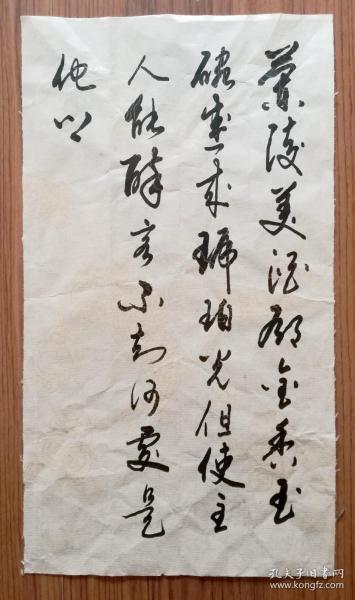 兰陵美酒郁金香玉
碗盛来琥珀光但使主
人能醉客不知何处是
他乡
孔夫子旧书网
www.kongfz.com